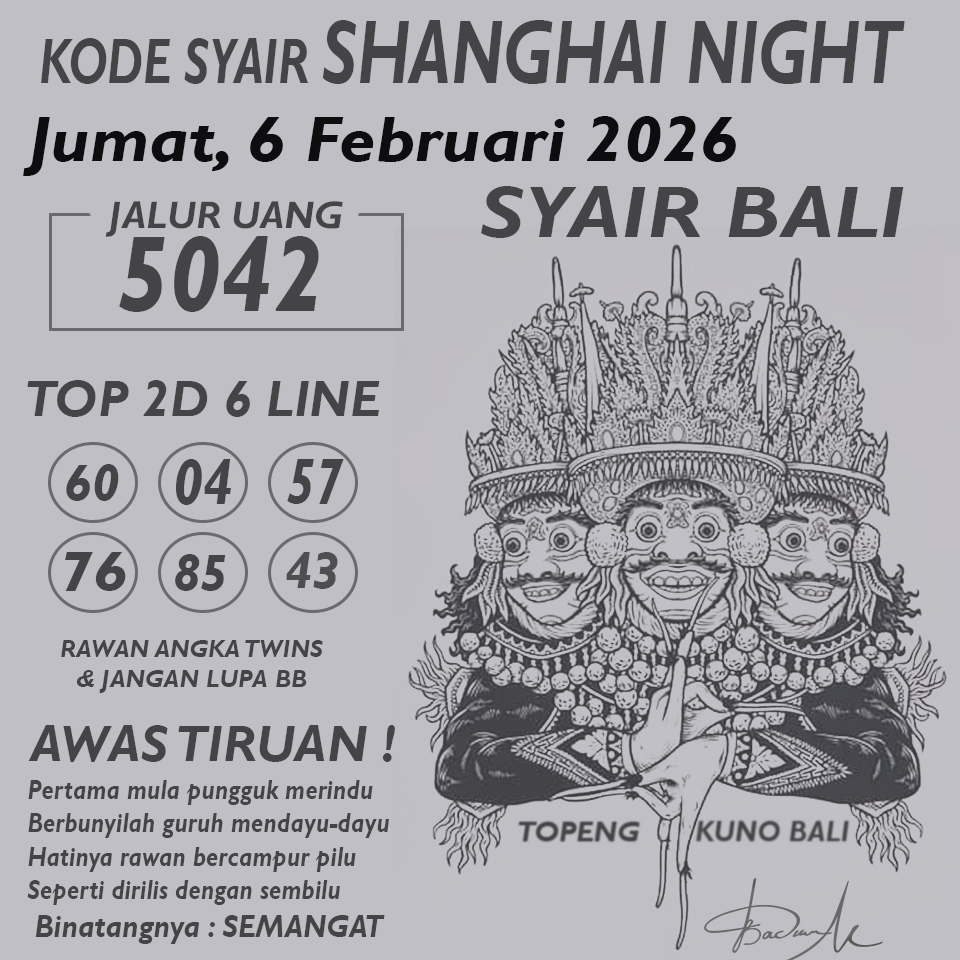 KODE SYAIR SHANGHAI NIGHT
Jumat, 6 Februari 2026
SYAIR BALI
JALUR UANG
5042
TOP 2D 6 LINE
60 04 57
76 85 43
RAWAN ANGKA TWINS
& JANGAN LUPA BB
AWAS TIRUAN !
Pertama mula pungguk merindu
Berbunyilah guruh mendayu-dayu
Hatinya rawan bercampur pilu
Seperti dirilis dengan sembilu
Binatangnya : SEMANGAT
TOPENG KUNO BALI